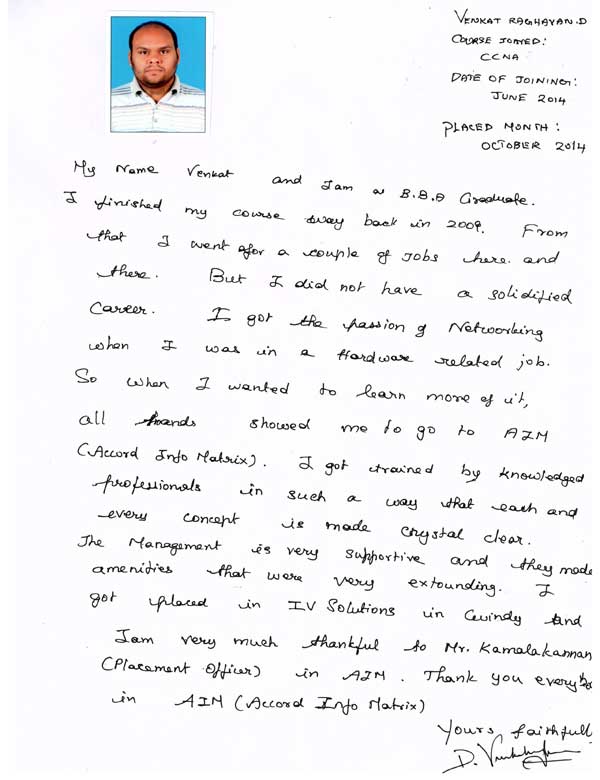 VENKAT RAGHAVAN.D
COURSE JOINED:
CCNA
DATE OF JOINING:
JUNE 2014
PLACED MONTH:
OCTOBER 2014
My Name Venkat and I am a B.B.A Graduate.
I finished my course way back in 2009. From
that I went for a couple of Jobs here and
there. But I did not have a solidified
Career. I got the passion of Networking
when I was in a Hardware related job.
So when I wanted to learn more of it,
all hands showed me to go to AIM
(Accord Info Matrix). I got trained by knowledged
professionals in such a way that each and
every concept is made crystal clear.
The Management is very supportive and they made
amenities that were very extounding. I
got placed in IV Solutions in Guindy and
I am very much thankful to Mr. Kamalakannan
(Placement Officer) in AIM. Thank you every
in AIM (Accord Info Matrix)
Yours faithfull